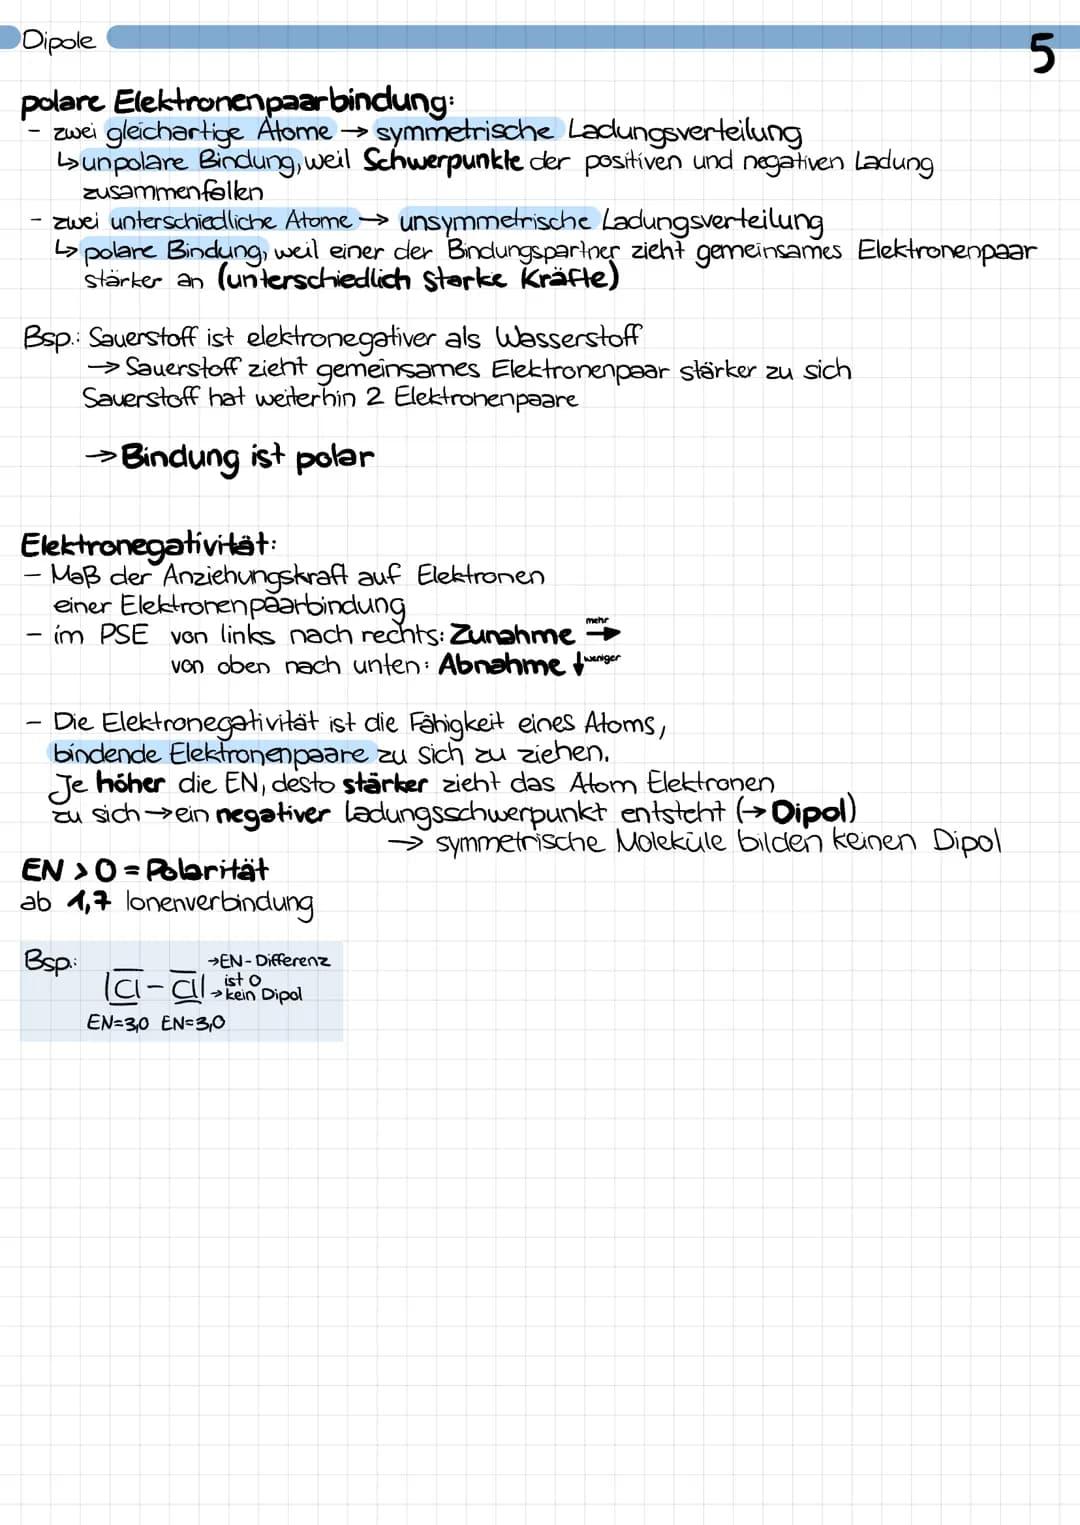 Dipole
5
polare Elektronenpaarbindung:
- zwei gleichartige Atome → symmetrische Ladungsverteilung
↳ unpolare Bindung, weil Schwerpunkte der positiven und negativen Ladung
zusammenfallen
- zwei unterschiedliche Atome → unsymmetrische Ladungsverteilung
↳ polare Bindung, weil einer der Bindungspartner zieht gemeinsames Elektronenpaar
stärker an (unterschiedlich starke Kräfte)
Bsp.: Sauerstoff ist elektronegativer als Wasserstoff
→ Sauerstoff zieht gemeinsames Elektronenpaar stärker zu sich
Sauerstoff hat weiterhin 2 Elektronenpaare
→ Bindung ist polar
Elektronegativität:
- Maß der Anziehungskraft auf Elektronen
einer Elektronenpaarbindung
- im PSE von links nach rechts: Zunahme mehr →
von oben nach unten: Abnahme ↓ weniger
- Die Elektronegativität ist die Fähigkeit eines Atoms,
bindende Elektronenpaare zu sich zu ziehen.
Je höher die EN, desto stärker zieht das Atom Elektronen
zu sich → ein negativer Ladungsschwerpunkt entsteht (→ Dipol)
→ symmetrische Moleküle bilden keinen Dipol
EN > 0 = Polarität
ab 1,7 Ionenverbindung
Bsp.: → EN-Differenz
ist 0
|Cl - Cl| → kein Dipol
EN=3,0 EN=3,0